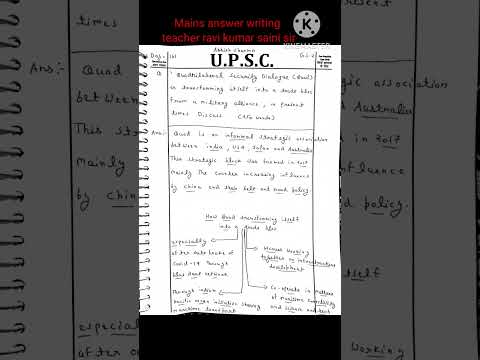 Mains answer writing
teacher ravi kumar saini sir
K
KINEMASTER
Ashish Sharma
U.P.S.C.
G.S-2
Q
Quadrilateral Security Dialogue (Quad)
is transforming itself into a trade bloc
from a military alliance, in present
times Discuss
Ans:-
Quad is an informal strategic association
between india, USA, Japan and Australia
This strategic block was formed in 2017
mainly the counter increasing influence
by china and their belt and road policy.
How Quad transforming itself
into a trade bloc
especially
after outbreak of
Covid-19 through
blue doat network
Through indian
pacific ocean initiative sharing
maritime
Women working
together on infrastructure
development
Co-operate in matters
of maritime connectivity
and science and tech
times
Ans:-
Quad
between
This st
mainly
by chin
especial
after o
resent
association
Australia
in 2017
fluence
policy.
itself
working